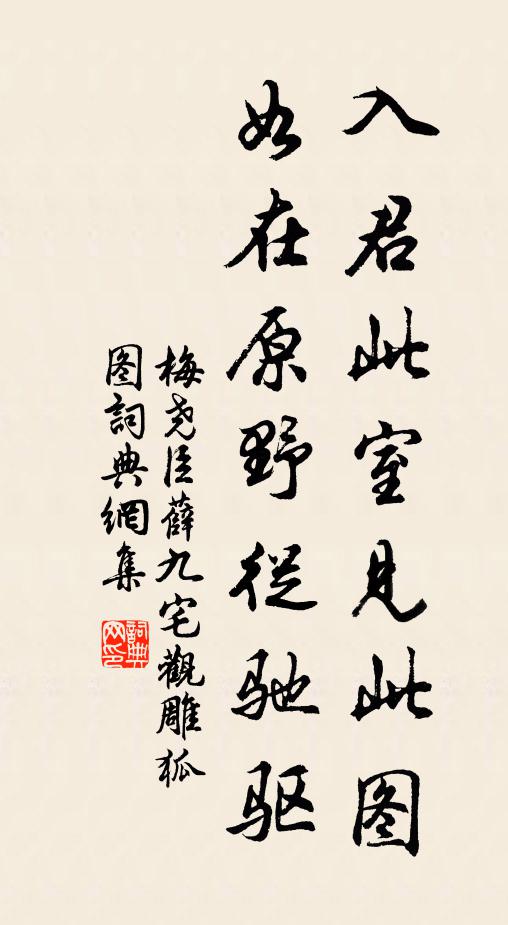 入君此室見此图
如在原野從驰驱
梅尧臣薛九宅觀雕狐
图詞典網集
詞典网印